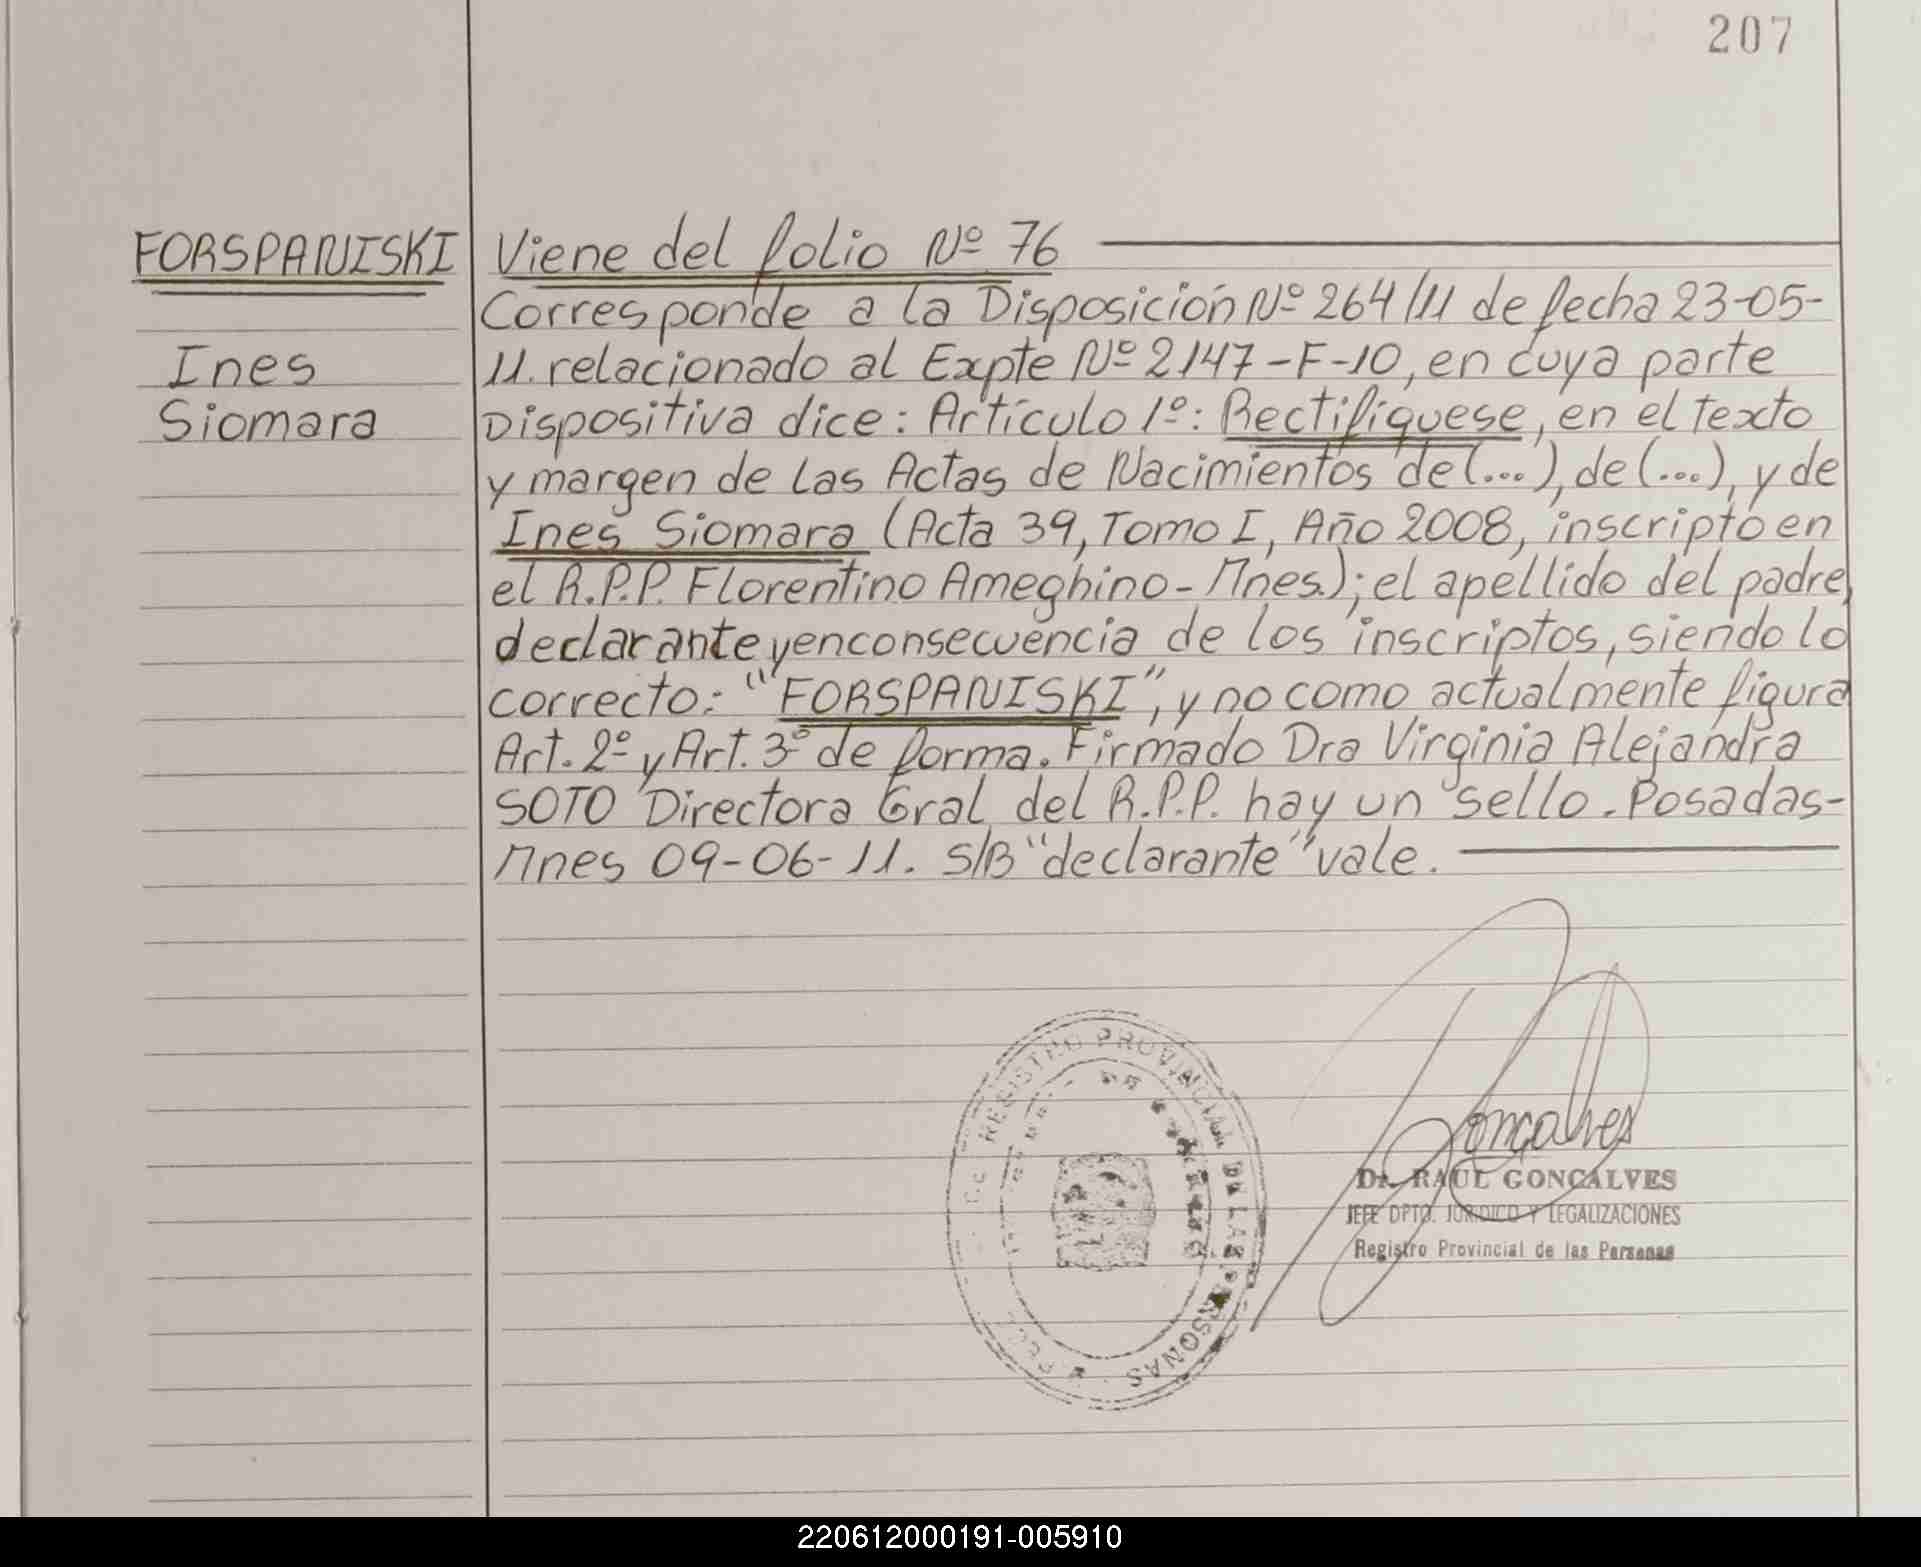 207
FORSPANISKI
Ines
Siomara
Viene del folio Nº 76
Corresponde a la Disposición Nº 264/11 de fecha 23-05-
11. relacionado al Expte Nº 2147-F-10, en cuya parte
Dispositiva dice: Artículo 1º: Rectifiquese, en el texto
y margen de las Actas de Nacimientos de (...), de (...), y de
Ines Siomara (Acta 39, Tomo I, Año 2008, inscripto en
el R.P.P. Florentino Ameghino - Mnes.); el apellido del padre,
declarante y en consecuencia de los inscriptos, siendo lo
correcto: "FORSPANISKI", y no como actualmente figura
Art. 2º y Art. 3º de forma. Firmado Dra Virginia Alejandra
SOTO Directora Gral del R.P.P. hay un sello. Posadas-
Mnes 09-06-11. S/B "declarante" vale.
REGISTRO PROVINCIAL DE LAS PERSONAS
Goncalves
Dr. RAUL GONCALVES
JEFE DPTO. JURIDICO Y LEGALIZACIONES
Registro Provincial de las Personas
220612000191-005910